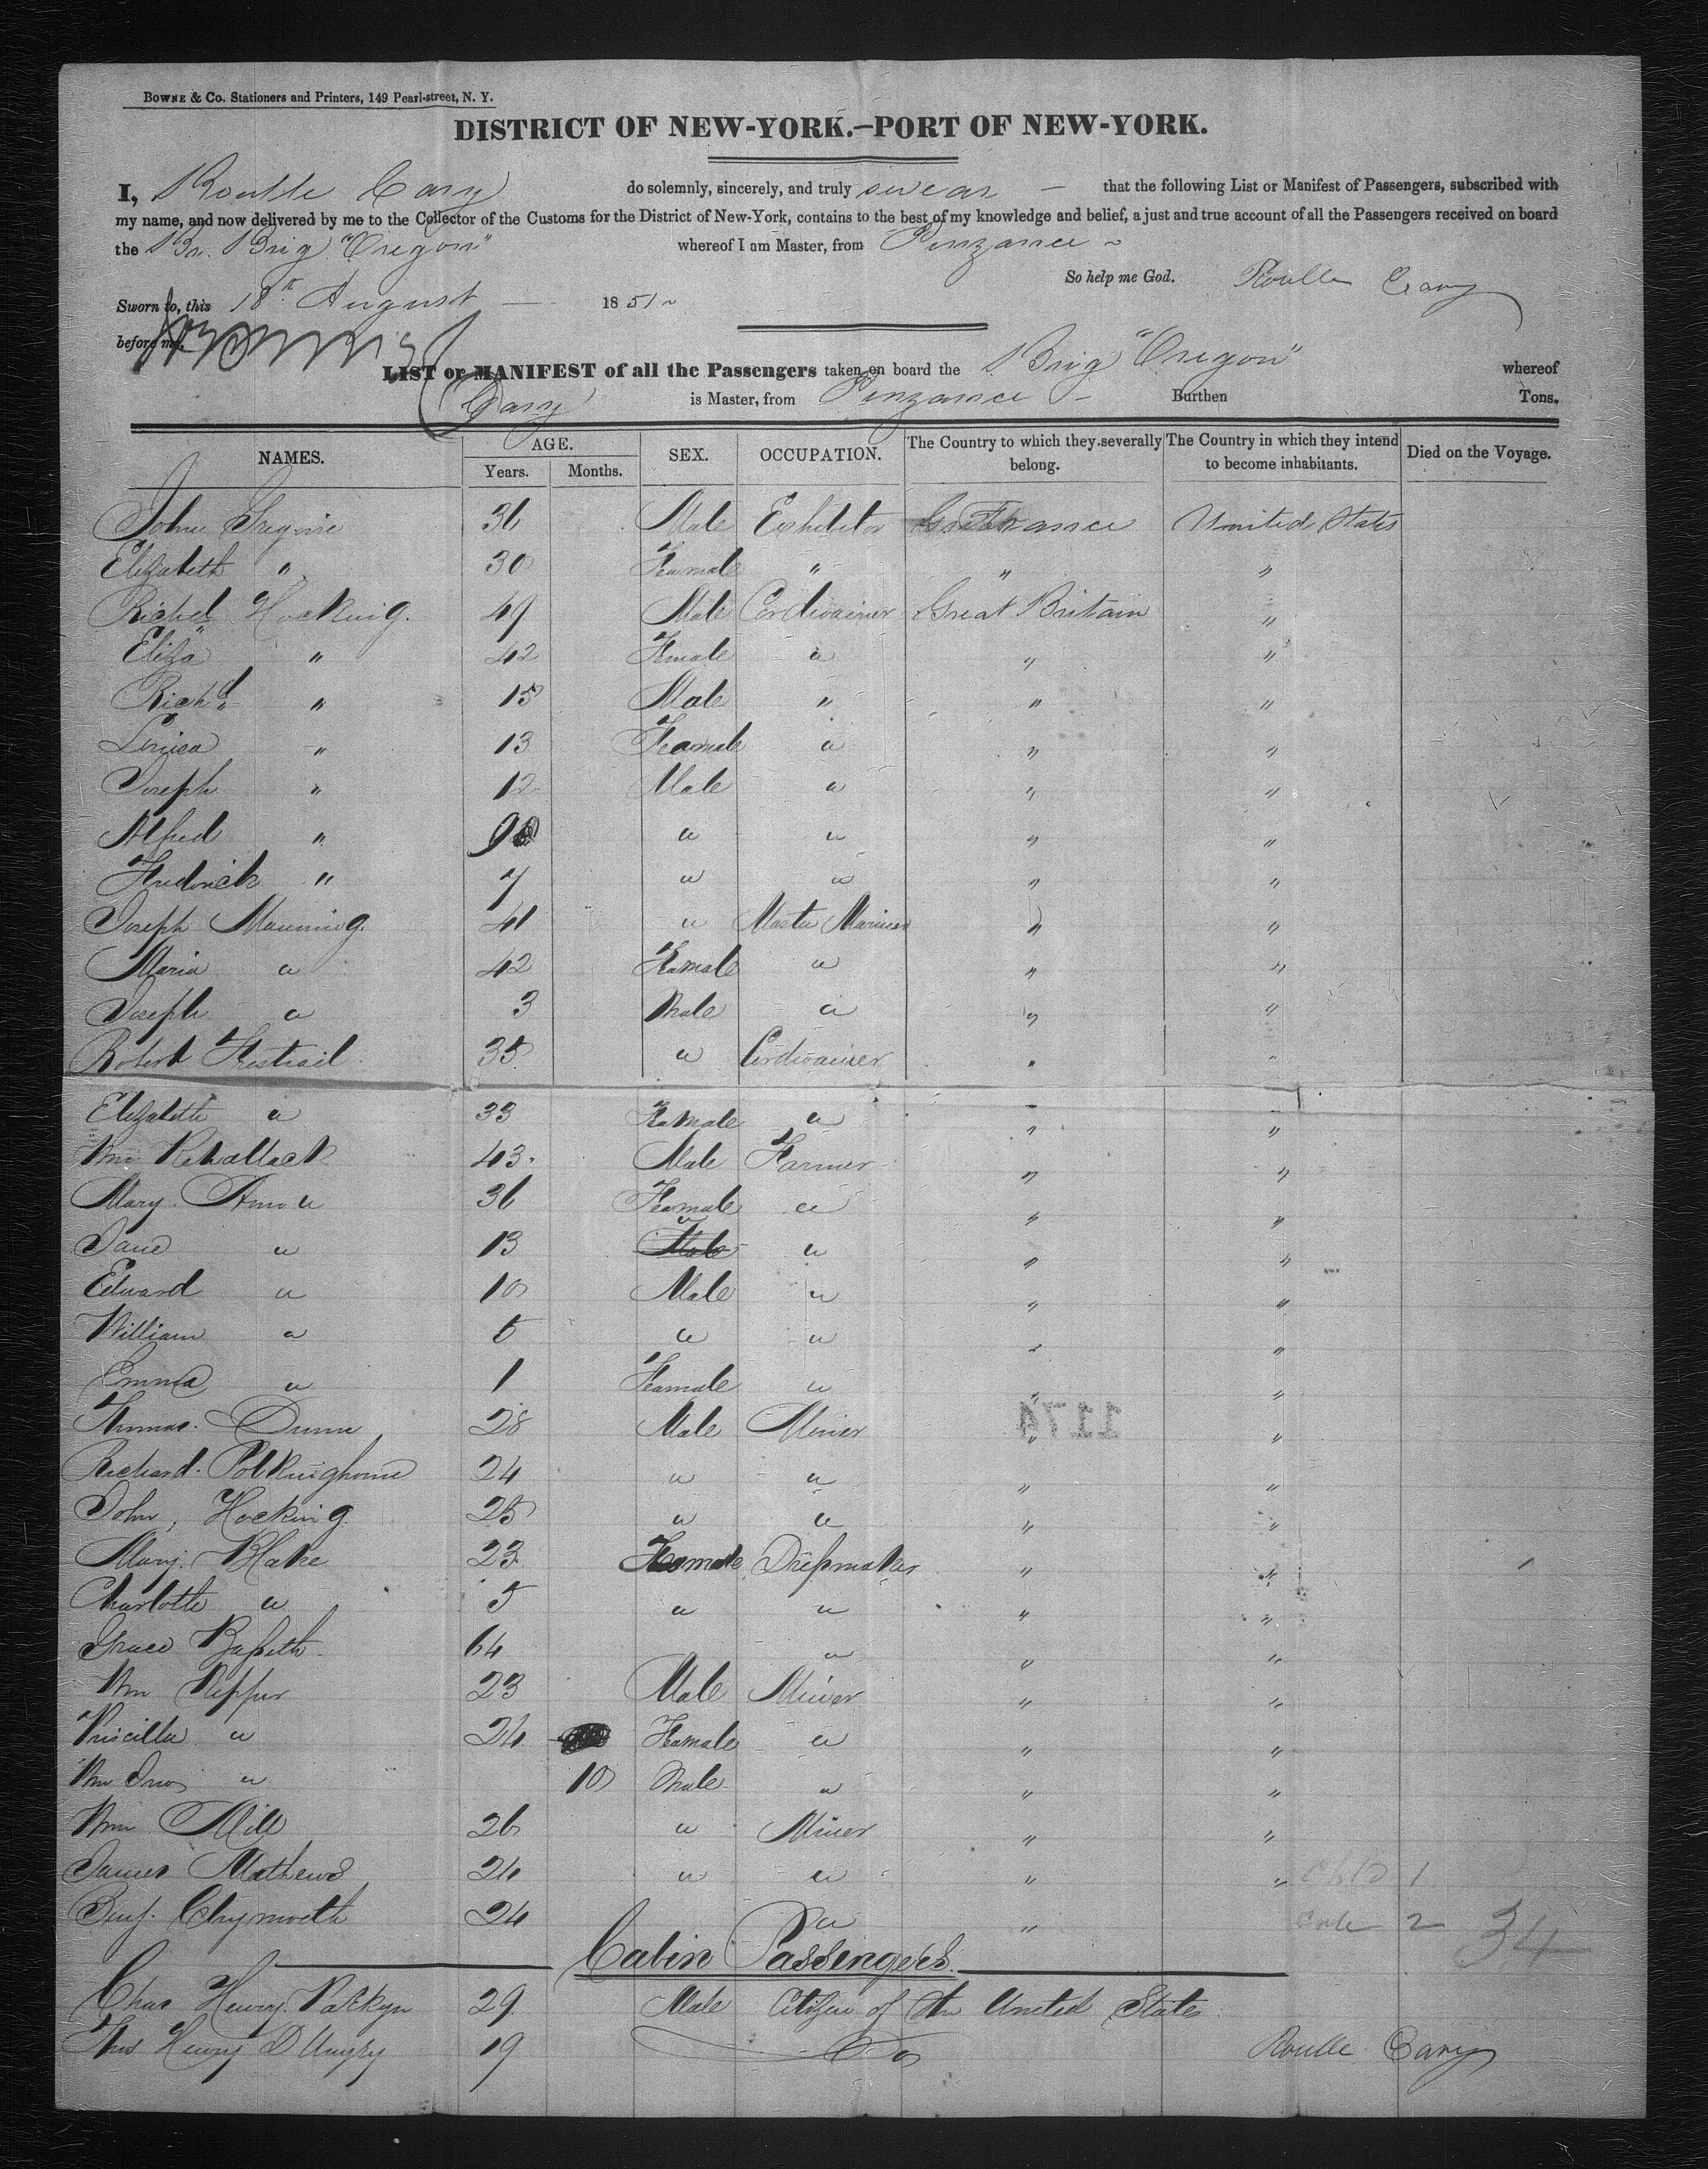 BOWNE & CO. Stationers and Printers, 149 Pearl-street, N. Y.
DISTRICT OF NEW-YORK.—PORT OF NEW-YORK.
I, Roulle Cary do solemnly, sincerely, and truly swear — that the following List or Manifest of Passengers, subscribed with
my name, and now delivered by me to the Collector of the Customs for the District of New-York, contains to the best of my knowledge and belief, a just and true account of all the Passengers received on board
the Br. Brig "Oregon" whereof I am Master, from Penzance
So help me God. Roulle Cary
Sworn to, this 18th August — 1851
before me,
LIST or MANIFEST of all the Passengers taken on board the Brig "Oregon" whereof
Cary is Master, from Penzance - Burthen Tons.
NAMES. AGE. Years. Months. SEX. OCCUPATION. The Country to which they severally belong. The Country in which they intend to become inhabitants. Died on the Voyage.
John 36 Male Exhibitor France United States
Elizabeth " 30 Feamale " " "
Richd Hocking. 49 Male Cordwainer Great Britain "
Eliza " 42 Female " " "
Richd " 15 Male " " "
" 13 Feamale " " "
Joseph " 12 Male " " "
Alfred " 9 " " " "
Frederick " 7 " " " "
Joseph Manning. 41 " Master Mariner " "
Maria " 42 Feamale " " "
Joseph " 3 Male " " "
Robert 35 " Cordwainer " "
Elizabeth " 33 Feamale " " "
Wm 43. Male Farmer " "
Mary Ann " 36 Feamale " " "
Jane " 13 " Male " " "
Edward " 10 Male " " "
William " 5 " " " "
Emma " 1 Feamale " " "
Thomas. Dunn 28 Male Miner " "
1174
Richard. Polkinghorne 24 " " " "
John, Hocking 25 " " " "
Mary. Blake 23 Feamale Dressmaker " "
Charlotte " 5 " " " "
Grace 64 " " "
Wm 23 Male Miner " "
Priscilla " 24 Feamale " " "
Wm Jno " 10 Male " " "
Wm Mill 26 " Miner " "
James Mathews 24 " " " " 1
Benj. Chymoeth 24 " " 2 34
Cabin Passengers.
Chas Henry 29 Male Citizen of the United States
Henry 19 Do
Roulle Cary